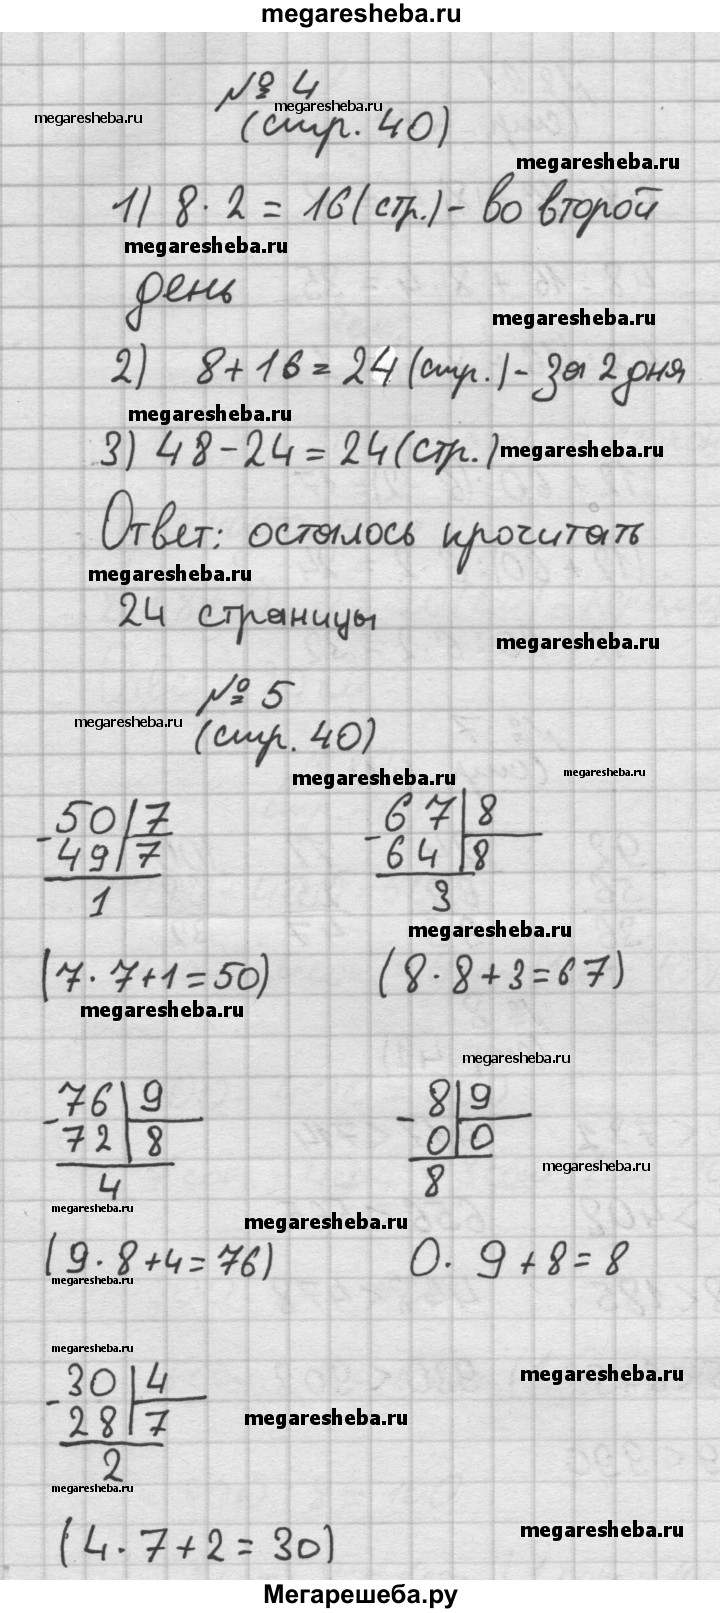 megaresheba.ru
№ 4
megaresheba.ru
megaresheba.ru
(стр. 40)
megaresheba.ru
1) 8 · 2 = 16 (стр.) - во второй
megaresheba.ru
день
megaresheba.ru
2) 8 + 16 = 24 (стр.) - за 2 дня
megaresheba.ru
3) 48 - 24 = 24 (стр.)
megaresheba.ru
Ответ: осталось прочитать
megaresheba.ru
24 страницы
megaresheba.ru
№ 5
megaresheba.ru
(стр. 40)
megaresheba.ru
megaresheba.ru
- 50 | 7
49 | 7
1
- 67 | 8
64 | 8
3
megaresheba.ru
(7 · 7 + 1 = 50)
(8 · 8 + 3 = 67)
megaresheba.ru
megaresheba.ru
- 76 | 9
72 | 8
4
- 8 | 9
0 | 0
8
megaresheba.ru
megaresheba.ru
megaresheba.ru
(9 · 8 + 4 = 76)
0 · 9 + 8 = 8
megaresheba.ru
megaresheba.ru
megaresheba.ru
- 30 | 4
28 | 7
2
megaresheba.ru
megaresheba.ru
megaresheba.ru
(4 · 7 + 2 = 30)
Мегарешеба.ру